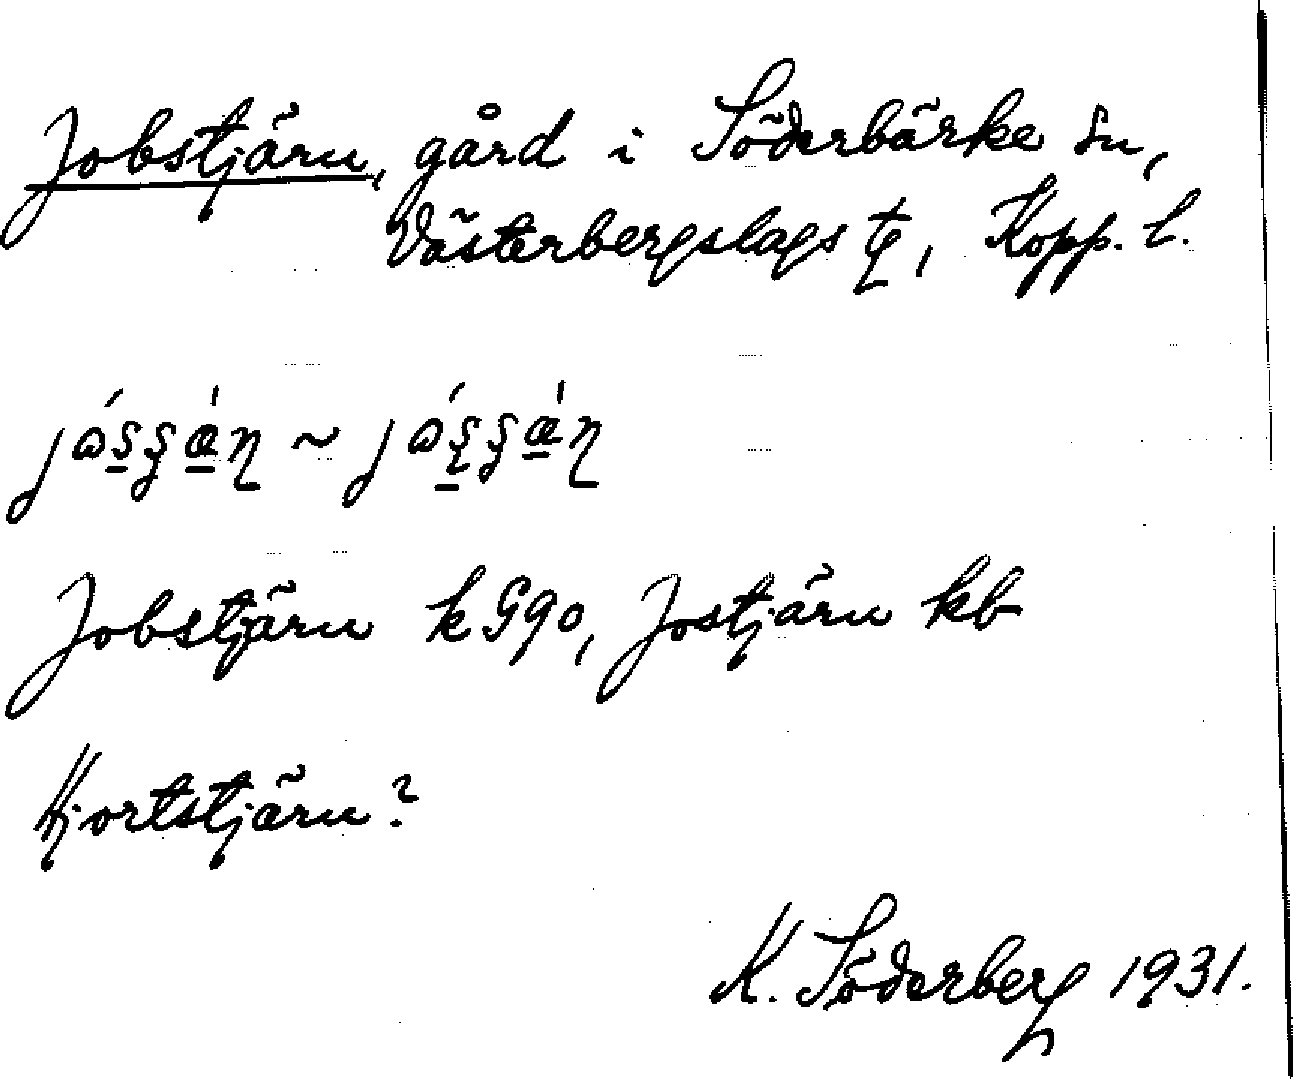 Jobstjärn, gård i Söderbärke sn,
Västerbergslags tg, Kopp. l.
Jobstjärn k G90, Jostjärn kb
Hjortstjärn?
K. Söderberg 1931.